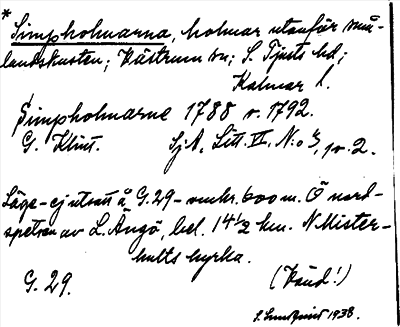 * Simpholmarna, holmar utanför små-
landskusten; Västrum sn; S. Tjusts hd;
Kalmar l.
Simpholmarne 1788 o. 1792.
G. Klint. SjA, Litt. VI, N:o 3, 2.
Läge – ej utsatt å G.29 – omkr. 600 m. Ö nord-
spetsen av L. Ängö, bel. 14 1/2 km. N Mister-
hults kyrka.
G. 29. (Känd!)
S. Lundqvist 1938.